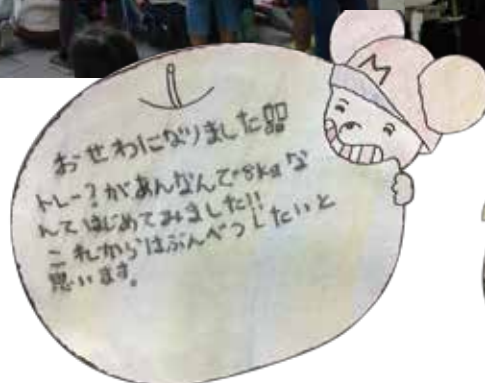 M
おせわになりました!!
トレー?があんなんで8kgな
んてはじめてみました!!
これからはぶんべつしたいと
思います。